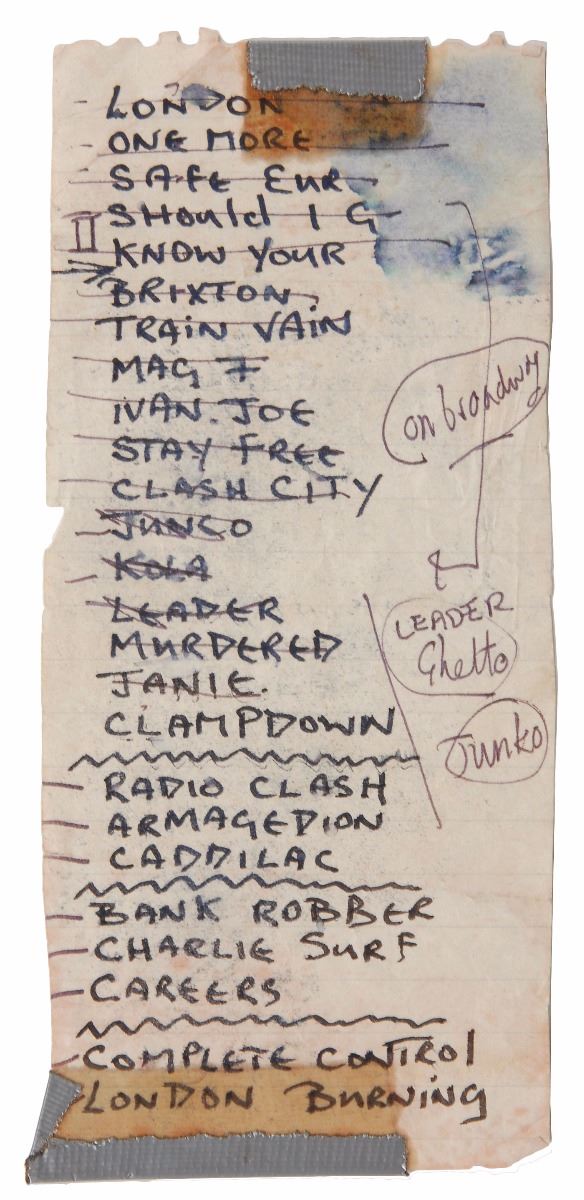 LONDON
ONE MORE
SAFE EUR
SHOUld I G
II
KNOW YOUR
BRIXTON
TRAIN VAIN
MAG 7
IVAN. JOE
STAY FREE
CLASH CITY
JUNCO
KOLA
LEADER
MURDERED
JANIE.
CLAMPDOWN
RADIO CLASH
ARMAGEDION
CADDILAC
BANK ROBBER
CHARLIE SURF
CAREERS
COMPLETE CONTROl
LONDON BURNING
on broadway
LEADER
Ghetto
Junko